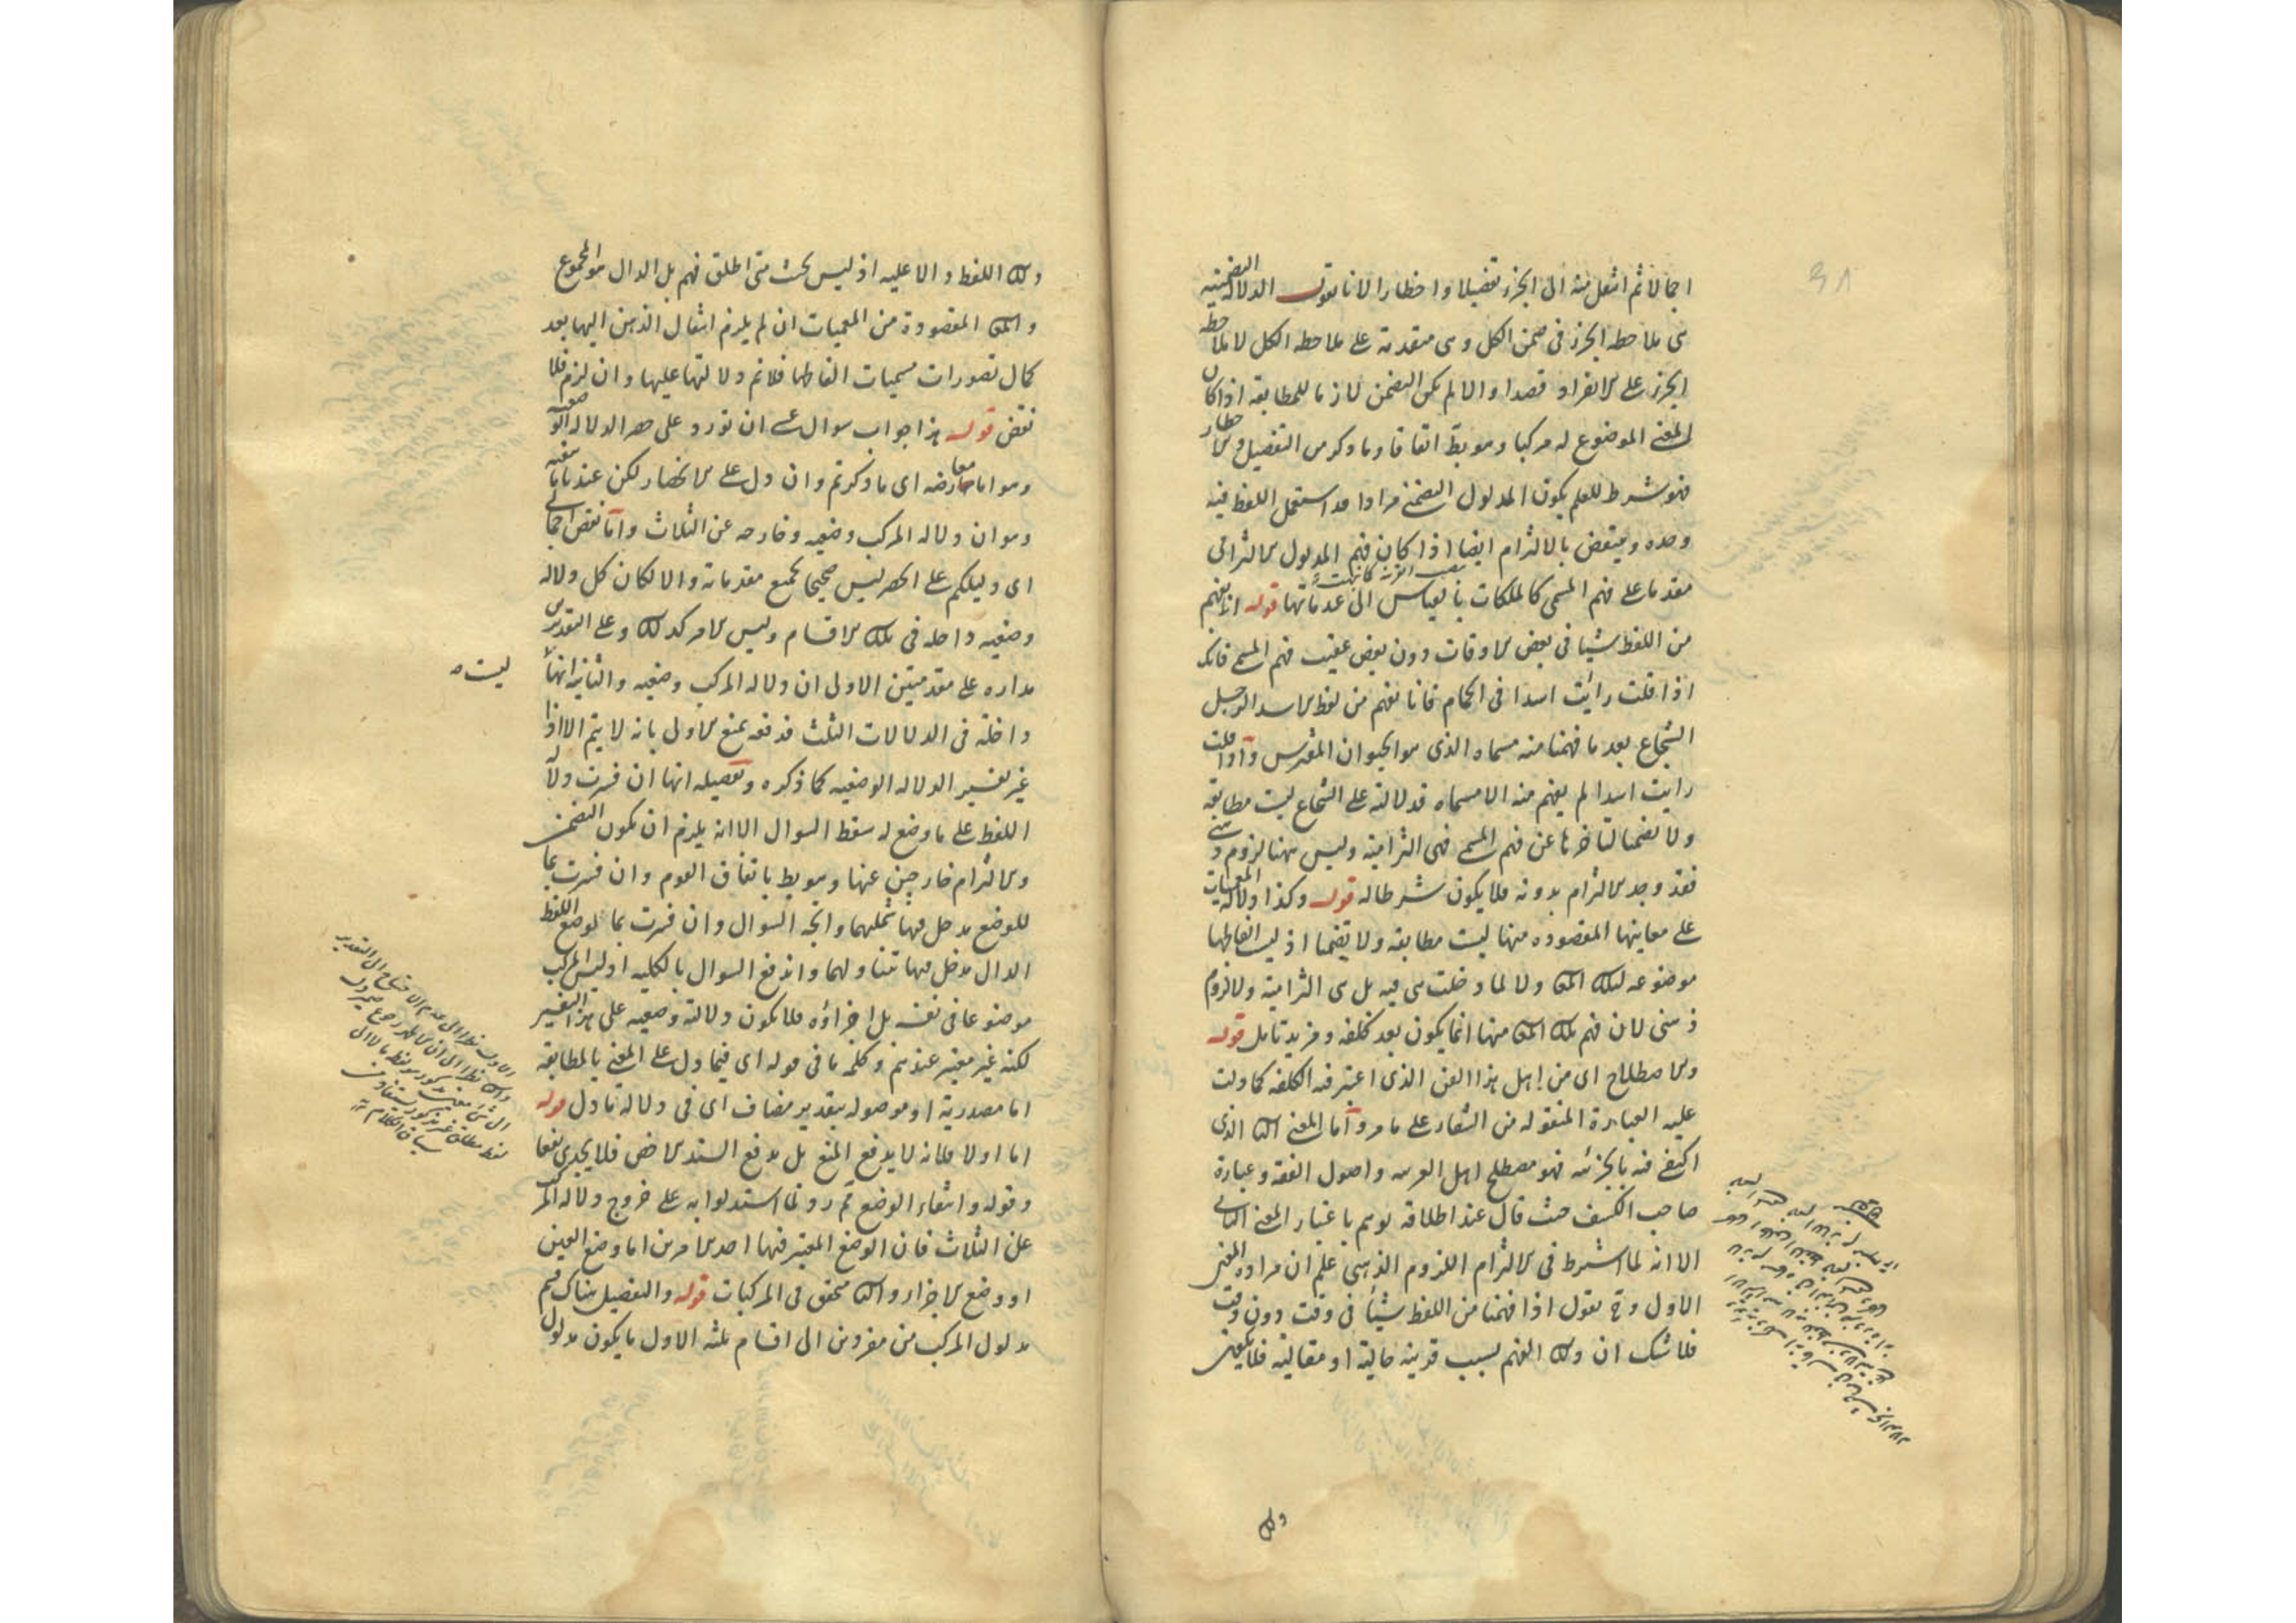 اجمالا ثم انتقل منه الى الجزء تفصيلا واخطارا لانا نقول الدلالة التضمنية
هى ملاحظه الجزء فى ضمن الكل وهى متقدمة على ملاحظه الكل لا ملاحظه
الجزء على الانفراد قصدا والا لم يكن التضمن لازما للمطابقه اذا كان
المعنى الموضوع له مركبا وهو بط اتفاقا وما ذكر من التفصيل والاخطار
فهو شرط للعلم بكون المدلول التضمنى مرادا قد استعمل اللفظ فيه
وحده وينتقض بالالتزام ايضا اذا كان فهم المدلول الالتزامى
مقدما على فهم المسمى كالملكات بالقياس الى عدماتها قوله انا نفهم
من اللفظ شيئا فى بعض الاوقات دون بعض عقيب فهم المسمى فانك
اذا قلت رايت اسدا فى الحمام فانا نفهم من لفظ الاسد الرجل
الشجاع بعد ما فهمنا منه مسماه الذى هو الحيوان المفترس واذا قلت
رايت اسدا لم يفهم منه الا مسماه فدلالته على الشجاع ليست مطابقه
ولا تضمنا لتاخرها عن فهم المسمى فهى التزامية وليس ههنا لزوم ذهنى
فقد وجد الالتزام بدونه فلا يكون شرطا له قوله وكذا دلالة المعميات
على معانيها المقصوده منها ليست مطابقه ولا تضمنا اذ ليست الفاظها
موضوعه لتلك المعانى ولا لما دخلت هى فيه بل هى التزامية ولا لزوم
ذهنى لان فهم تلك المعانى منها انما يكون بعد كلفه ومزيد تامل قوله
والاصطلاح اى من اهل هذا الفن الذى اعتبر فيه الكلفه كما دلت
عليه العبارة المنقوله من الشفاء على ما مر واما المعنى الثانى الذى
اكتفى فيه بالجزئيه فهو مصطلح اهل العربيه واصول الفقه وعبارة
صاحب الكشف حيث قال عند اطلاقه يوهم باعتبار المعنى الثانى
الا انه لما اشترط فى الالتزام اللزوم الذهنى علم ان مراده المعنى
الاول وح نقول اذا فهمنا من اللفظ شيئا فى وقت دون وقت
فلا شك ان ذلك الفهم بسبب قرينه حالية او مقالية فلا يكون
ذلك
ذلك اللفظ دالا عليه اذ ليس بحيث متى اطلق فهم بل الدال هو المجموع
والمعانى المقصودة من المعميات ان لم يلزم انتقال الذهن اليها بعد
كمال تصورات مسميات الفاظها فلا نم دلالتها عليها وان لزم فلا
نقض قوله هذا جواب سوال عسى ان تورد على حصر الدلاله الوضعيه
وهو اما معارضه اى ما ذكرتم وان دل على الانحصار لكن عندنا ما ينفيه
وهو ان دلاله المركب وضعيه وخارجه عن الثلاث واما نقض اجمالى
اى دليلكم على الحصر ليس صحيحا بجميع مقدماته والا لكان كل دلاله
وضعيه داخله فى تلك الاقسام وليس الامر كذلك وعلى التقديرين
مداره على مقدمتين الاولى ان دلاله المركب وضعيه والثانيه انها لا
ليست
داخلة فى الدلالات الثلث فدفعه بمنع الاولى بانه لا يتم الا اذا
غير تفسير الدلاله الوضعيه كما ذكره وتفصيله انها ان فسرت بدلالة
اللفظ على ما وضع له سقط السوال الا انه يلزم ان يكون التضمن
والالتزام خارجين عنها وهو بط باتفاق القوم وان فسرت بما
للوضع مدخل فيها شملهما واتجه السوال وان فسرت بما لوضع اللفظ
الدال مدخل فيها تتناولهما واندفع السوال بالكليه اذ ليس المركب
موضوعا فى نفسه بل اجزاؤه فلا يكون دلالته وضعيه على هذا التفسير
لكنه غير معتبر عندهم وكلمه ما فى قوله اى فيما دل على المعنى بالمطابقه
اما مصدرية او موصوله بتقدير مضاف اى فى دلاله ما دل قوله
اما اولا فلانه لا يدفع المنع بل يدفع السند الاخص فلا يجدى نفعا
وقوله وانتفاء الوضع ثم رد لما استدلوا به على خروج دلاله المركب
عن الثلاث فان الوضع المعتبر فيها احد الامرين اما وضع العين
او وضع الاجزاء والثانى متحقق فى المركبات قوله والتفصيل هناك قسم
مدلول المركب من مفردين الى اقسام ثلثه الاول ما يكون مدلول